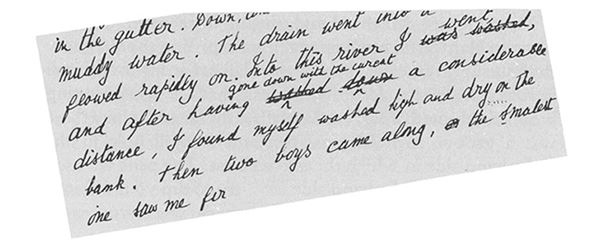 in the gutter. Down,
muddy water. The drain went into a
flowed rapidly on. Into this river I was washed, went,
gone down with the curent
and after having washed down a considerable
distance, I found myself washed high and dry on the
bank. Then two boys came along, the smalest
one saw me fir